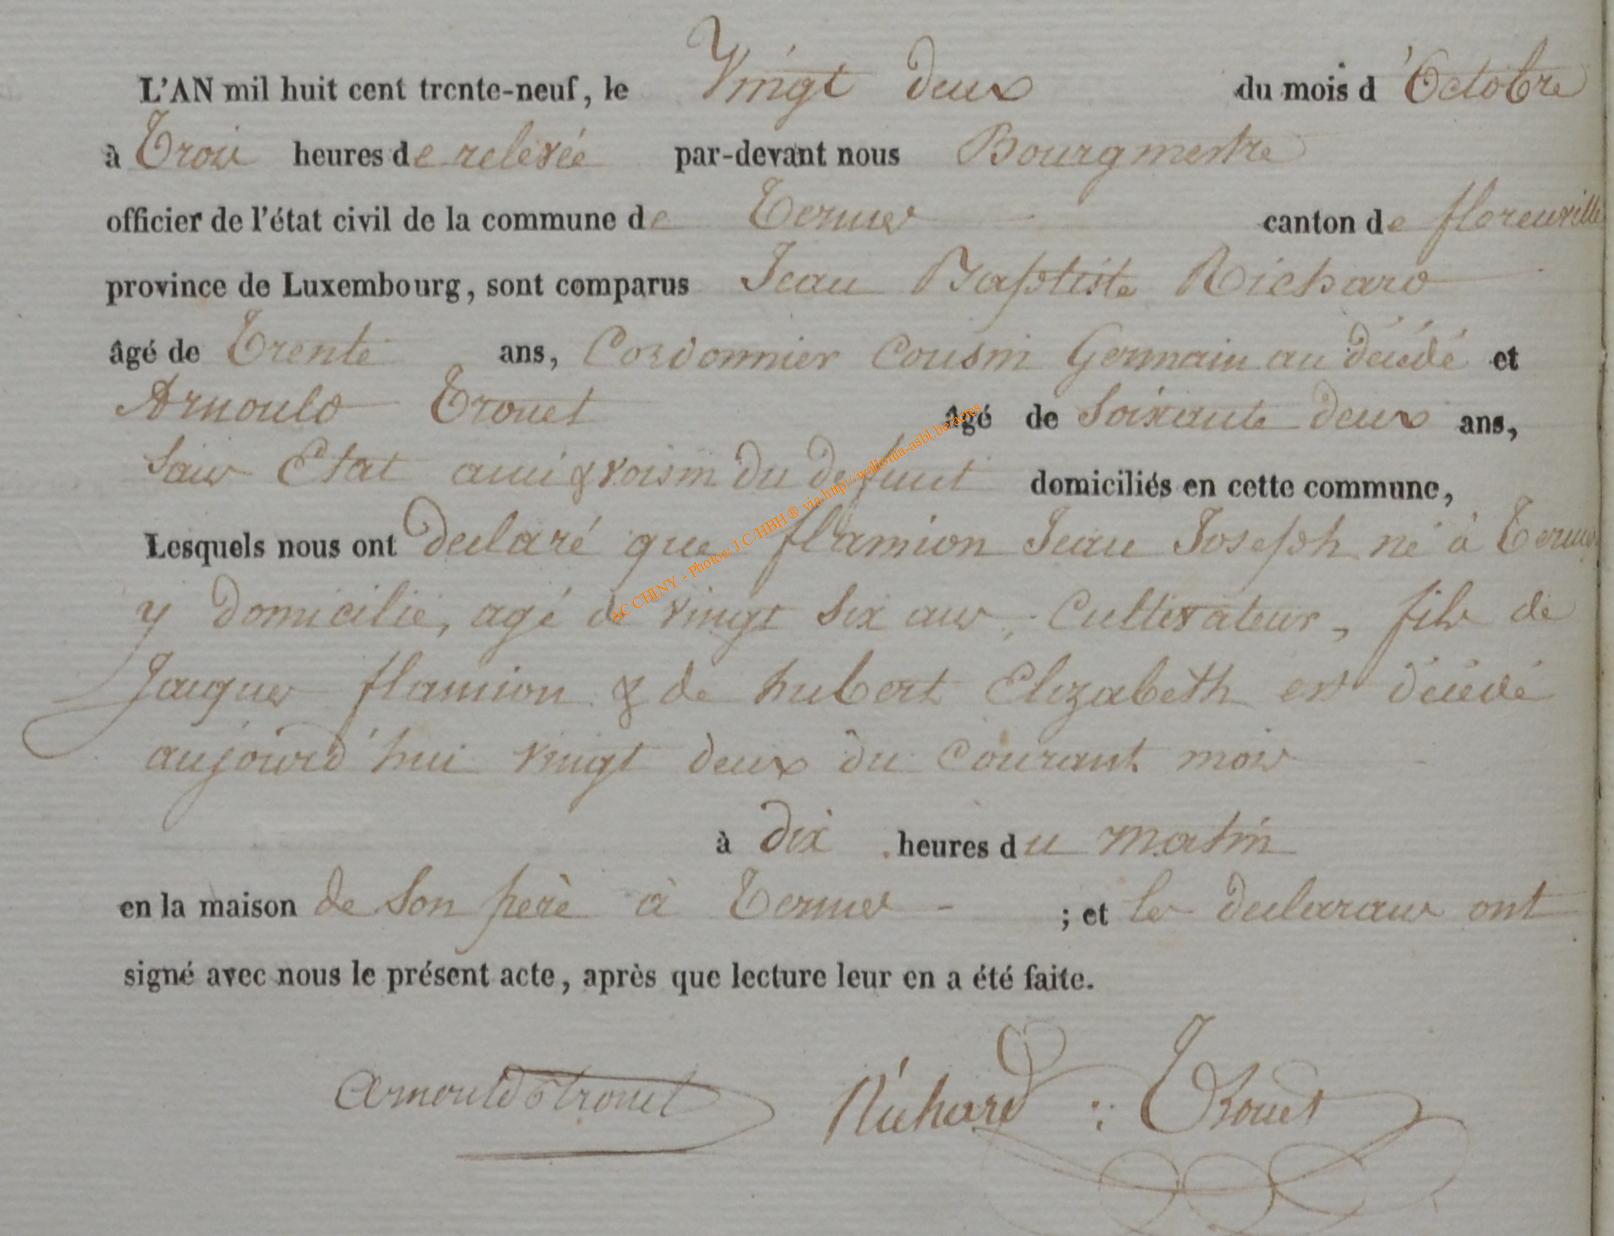 L'AN mil huit cent trente-neuf, le Vingt deux du mois d'Octobre
à Trois heures de relevée par-devant nous Bourgmestre
officier de l'état civil de la commune de Termes canton de florenville
province de Luxembourg, sont comparus Jean Baptiste Richard
âgé de Trente ans, Cordonnier Cousin Germain au décédé et
Arnould Trouet âgé de Soixante deux ans,
Sans Etat ami & voisin du defunt domiciliés en cette commune,
Lesquels nous ont declaré que flamion Jean Joseph né à Termes
y domicilié, agé de vingt six ans, Cultivateur, fils de
Jacques flamion & de hubert Elizabeth est décédé
aujourd'hui vingt deux du courant mois
à dix heures du matin
en la maison de son père à Termes - ; et les declarans ont
signé avec nous le présent acte, après que lecture leur en a été faite.
Arnould Trouet Richard : Trouet
AC CHINY - Photos J.C HBH ® via http://wallonia-asbl.be/actes